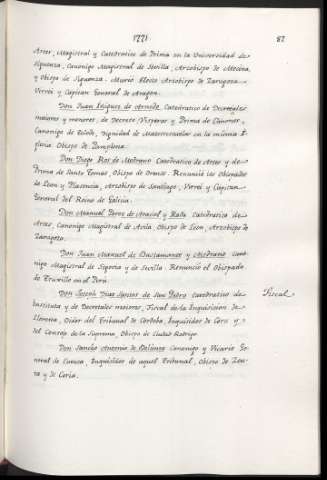 1771
87
Artes, Magistral y Catedratico de Prima en la Universidad de
Siguenza, Canonigo Magistral de Sevilla, Arzobispo de Mecina,
y Obispo de Siguenza. Murio Electo Arzobispo de Zaragoza
Virrei y Capitan General de Aragon.
Don Juan Iñiguez de Arnedo Catedratico de Decretales
maiores y menores, de Decreto, Visperas y Prima de Canones,
Canonigo de Toledo, Dignidad de Maestrescuelas en la misma I-
glesia Obispo de Pamplona.
Don Diego Ros de Medrano Catedratico de Artes y de
Prima de Santo Tomas, Obispo de Orense. Renunció los Obispados
de Leon y Plasencia, Arzobispo de Santiago, Virrei y Capitan
General del Reino de Galicia.
Don Manuel Perez de Araciel y Rada Catedratico de
Artes, Canonigo Magistral de Avila Obispo de Leon, Arzobispo de
Zaragoza.
Don Juan Manuel de Bustamante y Medrano Cano-
nigo Magistral de Segovia y de Sevilla. Renunció el Obispado
de Truxillo en el Perú.
Don Joseph Diaz Santos de San Pedro Catedratico de
Instituta y de Decretales maiores, Fiscal de la Inquisicion de
Llerena, Oidor del Tribunal de Cordoba, Inquisidor de Corte y
del Consejo de la Suprema, Obispo de Ciudad Rodrigo.
Fiscal
Don Sancho Antonio de Canonigo y Vicario Ge-
neral de Cuenca, Inquisidor de aquel Tribunal, Obispo de Ceu-
ta y de Coria.